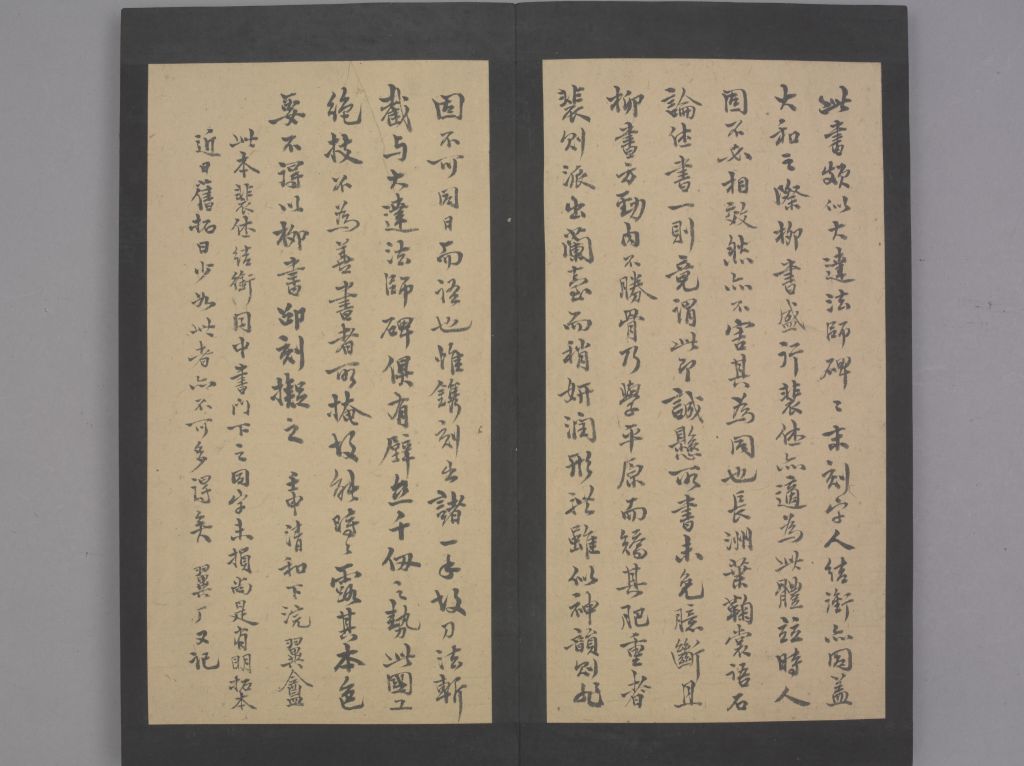 此書頗似大達法師碑〻末刻字人結銜亦同蓋
大和之際柳書盛行裴休亦適為此體竝時人
固不必相效然亦不害其為同也長洲葉鞠裳語石
論休書一則竟謂此即誠懸所書未免臆斷且
柳書方勁內不勝骨乃學平原而矯其肥重者
裴則派出蘭臺而稍妍潤形狀雖似神韻則
固不可同日而語也惟鐫刻出諸一手故刀法斬
截与大達法師碑俱有壁立千仞之勢此國工
絕技不為善書者所掩故能時〻露其本色
要不得以柳書即刻擬之 壬申清和下浣翼盦
此本裴休結銜同中書門下之同字未損尚是有明拓本
近日舊拓日少如此者亦不可多得矣 翼丁又記